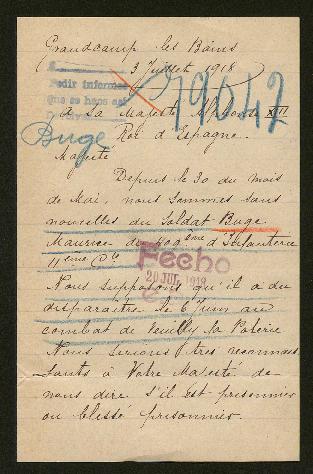 Grandcamp les Bains
3 Juillet 1918
Pedir informes
que se haus así
79042
à Sa Majesté Alphonse XIII
Roi d'Espagne.
Buge
Majesté
Depuis le 30 du mois
de Mai, nous sommes sans
nouvelles du Soldat Buge
Maurice du ème d'Infanterie
11ème Cie
Fecho
20 JUL. 1918
Nous supposons qu'il a du
disparaitre le 6 Juin au
combat de Veuilly la Poterie
Nous serions très reconnais
sants à Votre Majesté de
nous dire s'il est prisonnier
ou blessé prisonnier.